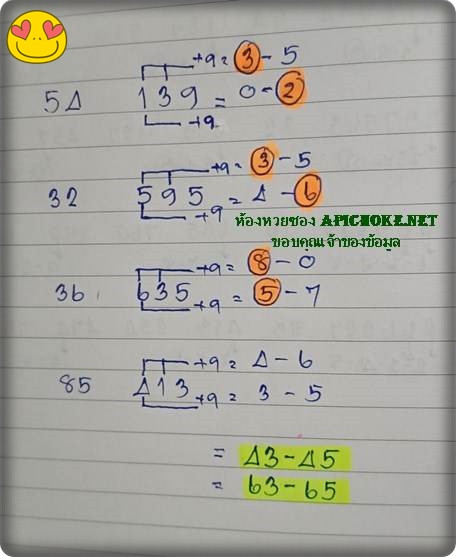 +9 = 3 - 5
54 139 = 0 - 2
+9
+9 = 3 - 5
32 595 = 4 - 6
+9
ห้องหวยซอง APICHOKE.NET
ขอบคุณเจ้าของข้อมูล
+9 = 8 - 0
36 635 = 5 - 7
+9
+9 = 4 - 6
85 413 +9 = 3 - 5
= 43 - 45
= 63 - 65